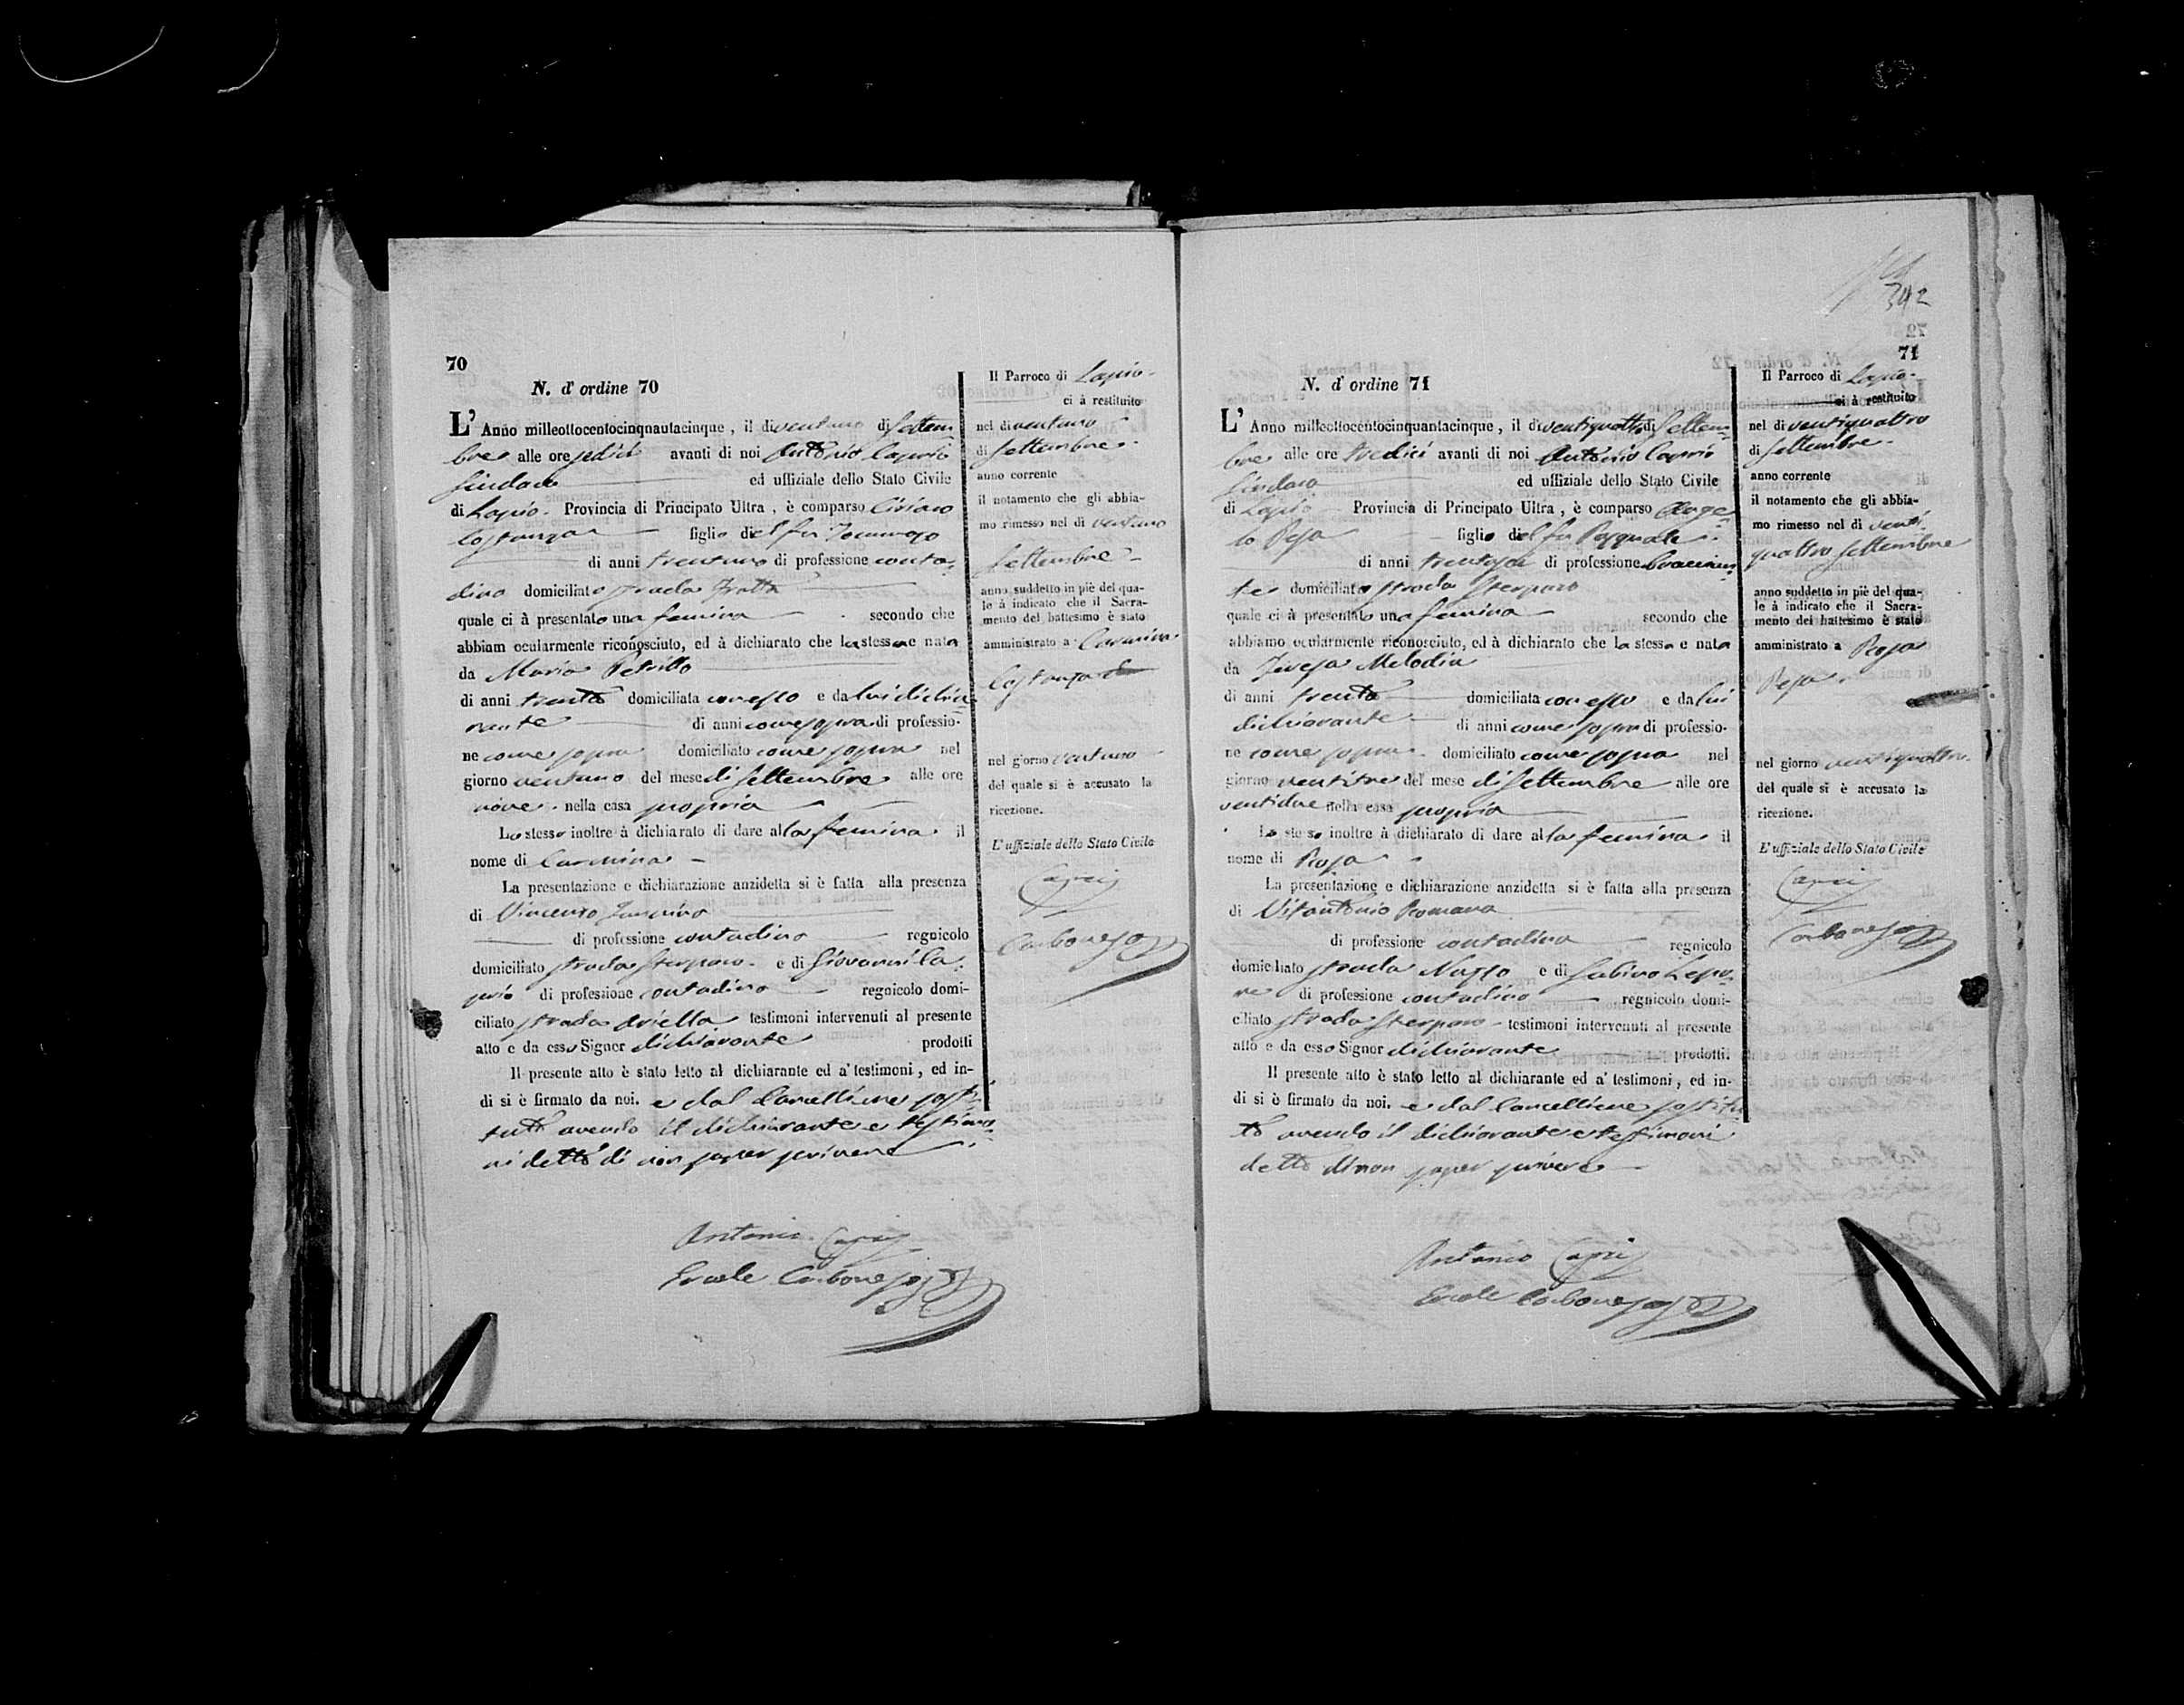 70
N. d'ordine 70
L'Anno milleottocentocinqnautacinque, il dì ventuno di Settem
bre alle ore sedici avanti di noi Antonio Caprio
Sindaco ed uffiziale dello Stato Civile
di Lapio. Provincia di Principato Ultra, è comparso Ciriaco
Costanza figlio del fu Tommaso
di anni trentuno di professione conta=
dino domiciliato strada Fratta
quale ci à presentato una femina secondo che
abbiam ocularmente riconosciuto, ed à dichiarato che la stessa e nata
da Maria Petrillo
di anni trenta domiciliata con esso e da lui dichia
rante di anni come sopra di professio-
ne come sopra domiciliato come sopra nel
giorno ventuno del mese di Settembre alle ore
nove. nella casa propria
Lo stesso inoltre à dichiarato di dare alla femina il
nome di Carmina
La presentazione e dichiarazione anzidetta si è fatta alla presenza
di Vincenzo
di professione contadino regnicolo
domiciliato strada Sterparo e di Giovanni Ca
prio di professione contadino regnicolo domi-
ciliato strada Ariella testimoni intervenuti al presente
atto e da esso Signor dichiarante prodotti
Il presente atto è stato letto al dichiarante ed a' testimoni, ed in-
di si è firmato da noi. e dal Cancelliere sosti
tuto avendo il dichiarante e testimo
ni detto di non saper scrivere
Antonio Caprio
Ercole Carbone
Il Parroco di Lapio
ci à restituito
nel dì ventuno
di Settembre
anno corrente
il notamento che gli abbia-
mo rimesso nel dì ventuno
Settembre
anno suddetto in piè del qua-
le à indicato che il Sacra-
mento del battesimo è stato
amministrato a Carmina
Costanza
nel giorno ventuno
del quale si è accusato la
ricezione.
L'uffiziale dello Stato Civile
Caprio
Carbone
342
71
N. d'ordine 71
L'Anno milleottocentocinquantacinque, il dì ventiquattro di Settem=
bre alle ore tredici avanti di noi Antonio Caprio
Sindaco ed uffiziale dello Stato Civile
di Lapio Provincia di Principato Ultra, è comparso Ange=
lo Pesa figlio del fu Pasquale
di anni trentasei di professione braccian
te domiciliato strada Sterparo
quale ci à presentato una femina secondo che
abbiamo ocularmente riconosciuto, ed à dichiarato che la stessa e nata
da Teresa Melodia
di anni trenta domiciliata con esso e da lui
dichiarante di anni come sopra di professio-
ne come sopra domiciliato come sopra nel
giorno ventitre del mese di Settembre alle ore
ventidue nella casa propria
Lo stesso inoltre à dichiarato di dare alla femina il
nome di Rosa
La presentazione e dichiarazione anzidetta si è fatta alla presenza
di Vitantonio Romano
di professione contadino regnicolo
domiciliato strada e di Sabino Lepo
re di professione contadino regnicolo domi-
ciliato strada Sterparo testimoni intervenuti al presente
atto e da esso Signor dichiarante prodotti.
Il presente atto è stato letto al dichiarante ed a' testimoni, ed in-
di si è firmato da noi. e dal Cancelliere sostitu
to avendo il dichiarante e testimoni
detto di non saper scrivere
Antonio Caprio
Ercole Carbone
Il Parroco di Lapio
ci à restituito
nel dì ventiquattro
di Settembre
anno corrente
il notamento che gli abbia-
mo rimesso nel dì venti
quattro Settembre
anno suddetto in piè del qua-
le à indicato che il Sacra-
mento del battesimo è stato
amministrato a Rosa
Pesa
nel giorno ventiquattro
del quale si è accusato la
ricezione.
L'uffiziale dello Stato Civile
Caprio
Carbone